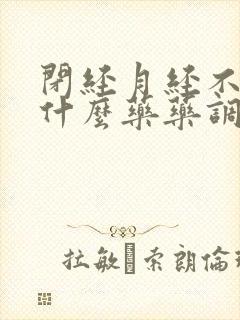 閉經月經不
什麼藥藥調
拉敏 索朗倫